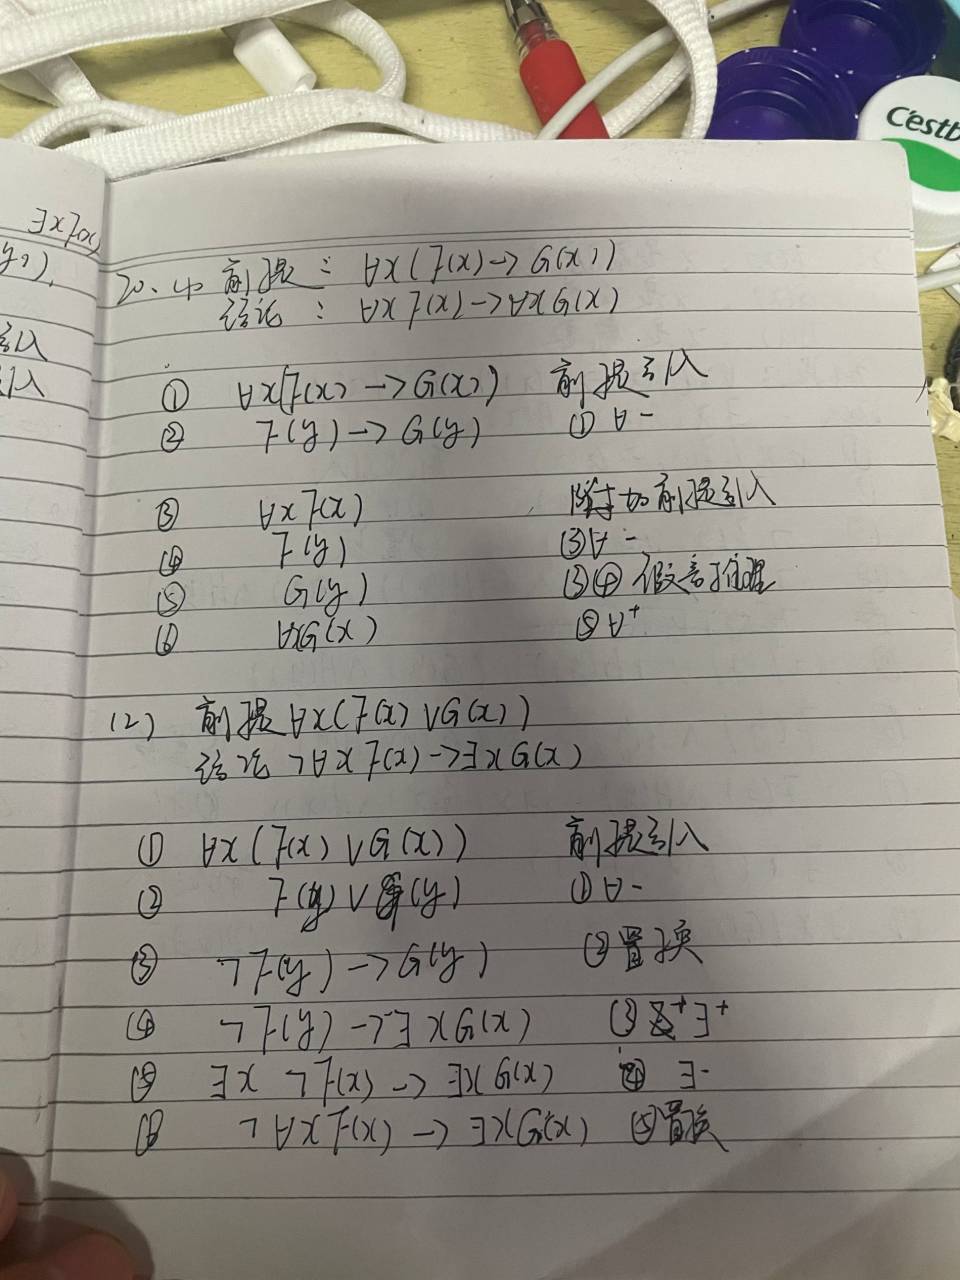 ∃xF(x)
y)),
引入
引入
C'estb
20. (1) 前提: ∀x(F(x)→G(x))
结论: ∀xF(x)→∀xG(x)
① ∀x(F(x)→G(x)) 前提引入
② F(y)→G(y) ①∀-
③ ∀xF(x) 附加前提引入
④ F(y) ③∀-
⑤ G(y) ③④假言推理
⑥ ∀xG(x) ⑤∀+
(2) 前提∀x(F(x)∨G(x))
结论¬∀xF(x)→∃xG(x)
① ∀x(F(x)∨G(x)) 前提引入
② F(y)∨G(y) ①∀-
③ ¬F(y)→G(y) ②置换
④ ¬F(y)→∃xG(x) ③∃+
⑤ ∃x¬F(x)→∃xG(x) ④∃-
⑥ ¬∀xF(x)→∃xG(x) ⑤置换